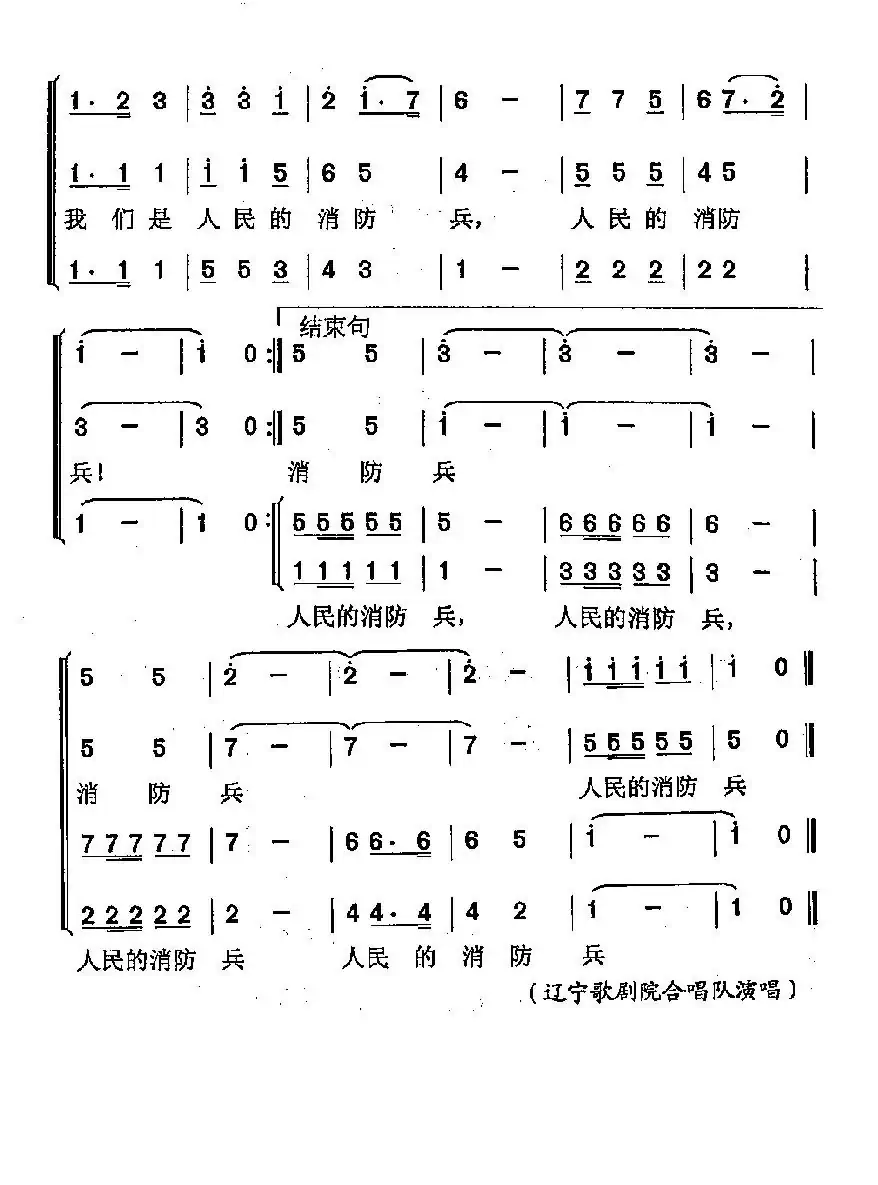 1· 2 3 | 3 3 i | 2 i· 7 | 6 − | 7 7 5 | 6 7· 2 |
1· 1 1 | i i 5 | 6 5 | 4 − | 5 5 5 | 4 5 |
我 们 是 人 民 的 消 防 兵， 人 民 的 消防
1· 1 1 | 5 5 3 | 4 3 | 1 − | 2 2 2 | 2 2 |
结束句
i − | i 0 :‖ 5 5 | 3 − | 3 − | 3 − |
3 − | 3 0 :‖ 5 5 | i − | i − | i − |
兵！ 消 防 兵
1 − | 1 0 :‖ 5 5 5 5 5 | 5 − | 6 6 6 6 6 | 6 − |
1 1 1 1 1 | 1 − | 3 3 3 3 3 | 3 − |
人民的消防 兵， 人民的消防 兵，
5 5 | 2 − | 2 − | 2 − | i i i i i | i 0 ‖
5 5 | 7 − | 7 − | 7 − | 5 5 5 5 5 | 5 0 ‖
消 防 兵 人民的消防 兵
7 7 7 7 7 | 7 − | 6 6· 6 | 6 5 | i − | i 0 ‖
2 2 2 2 2 | 2 − | 4 4· 4 | 4 2 | i − | 1 0 ‖
人民的消防 兵 人民 的 消 防 兵
（辽宁歌剧院合唱队演唱）